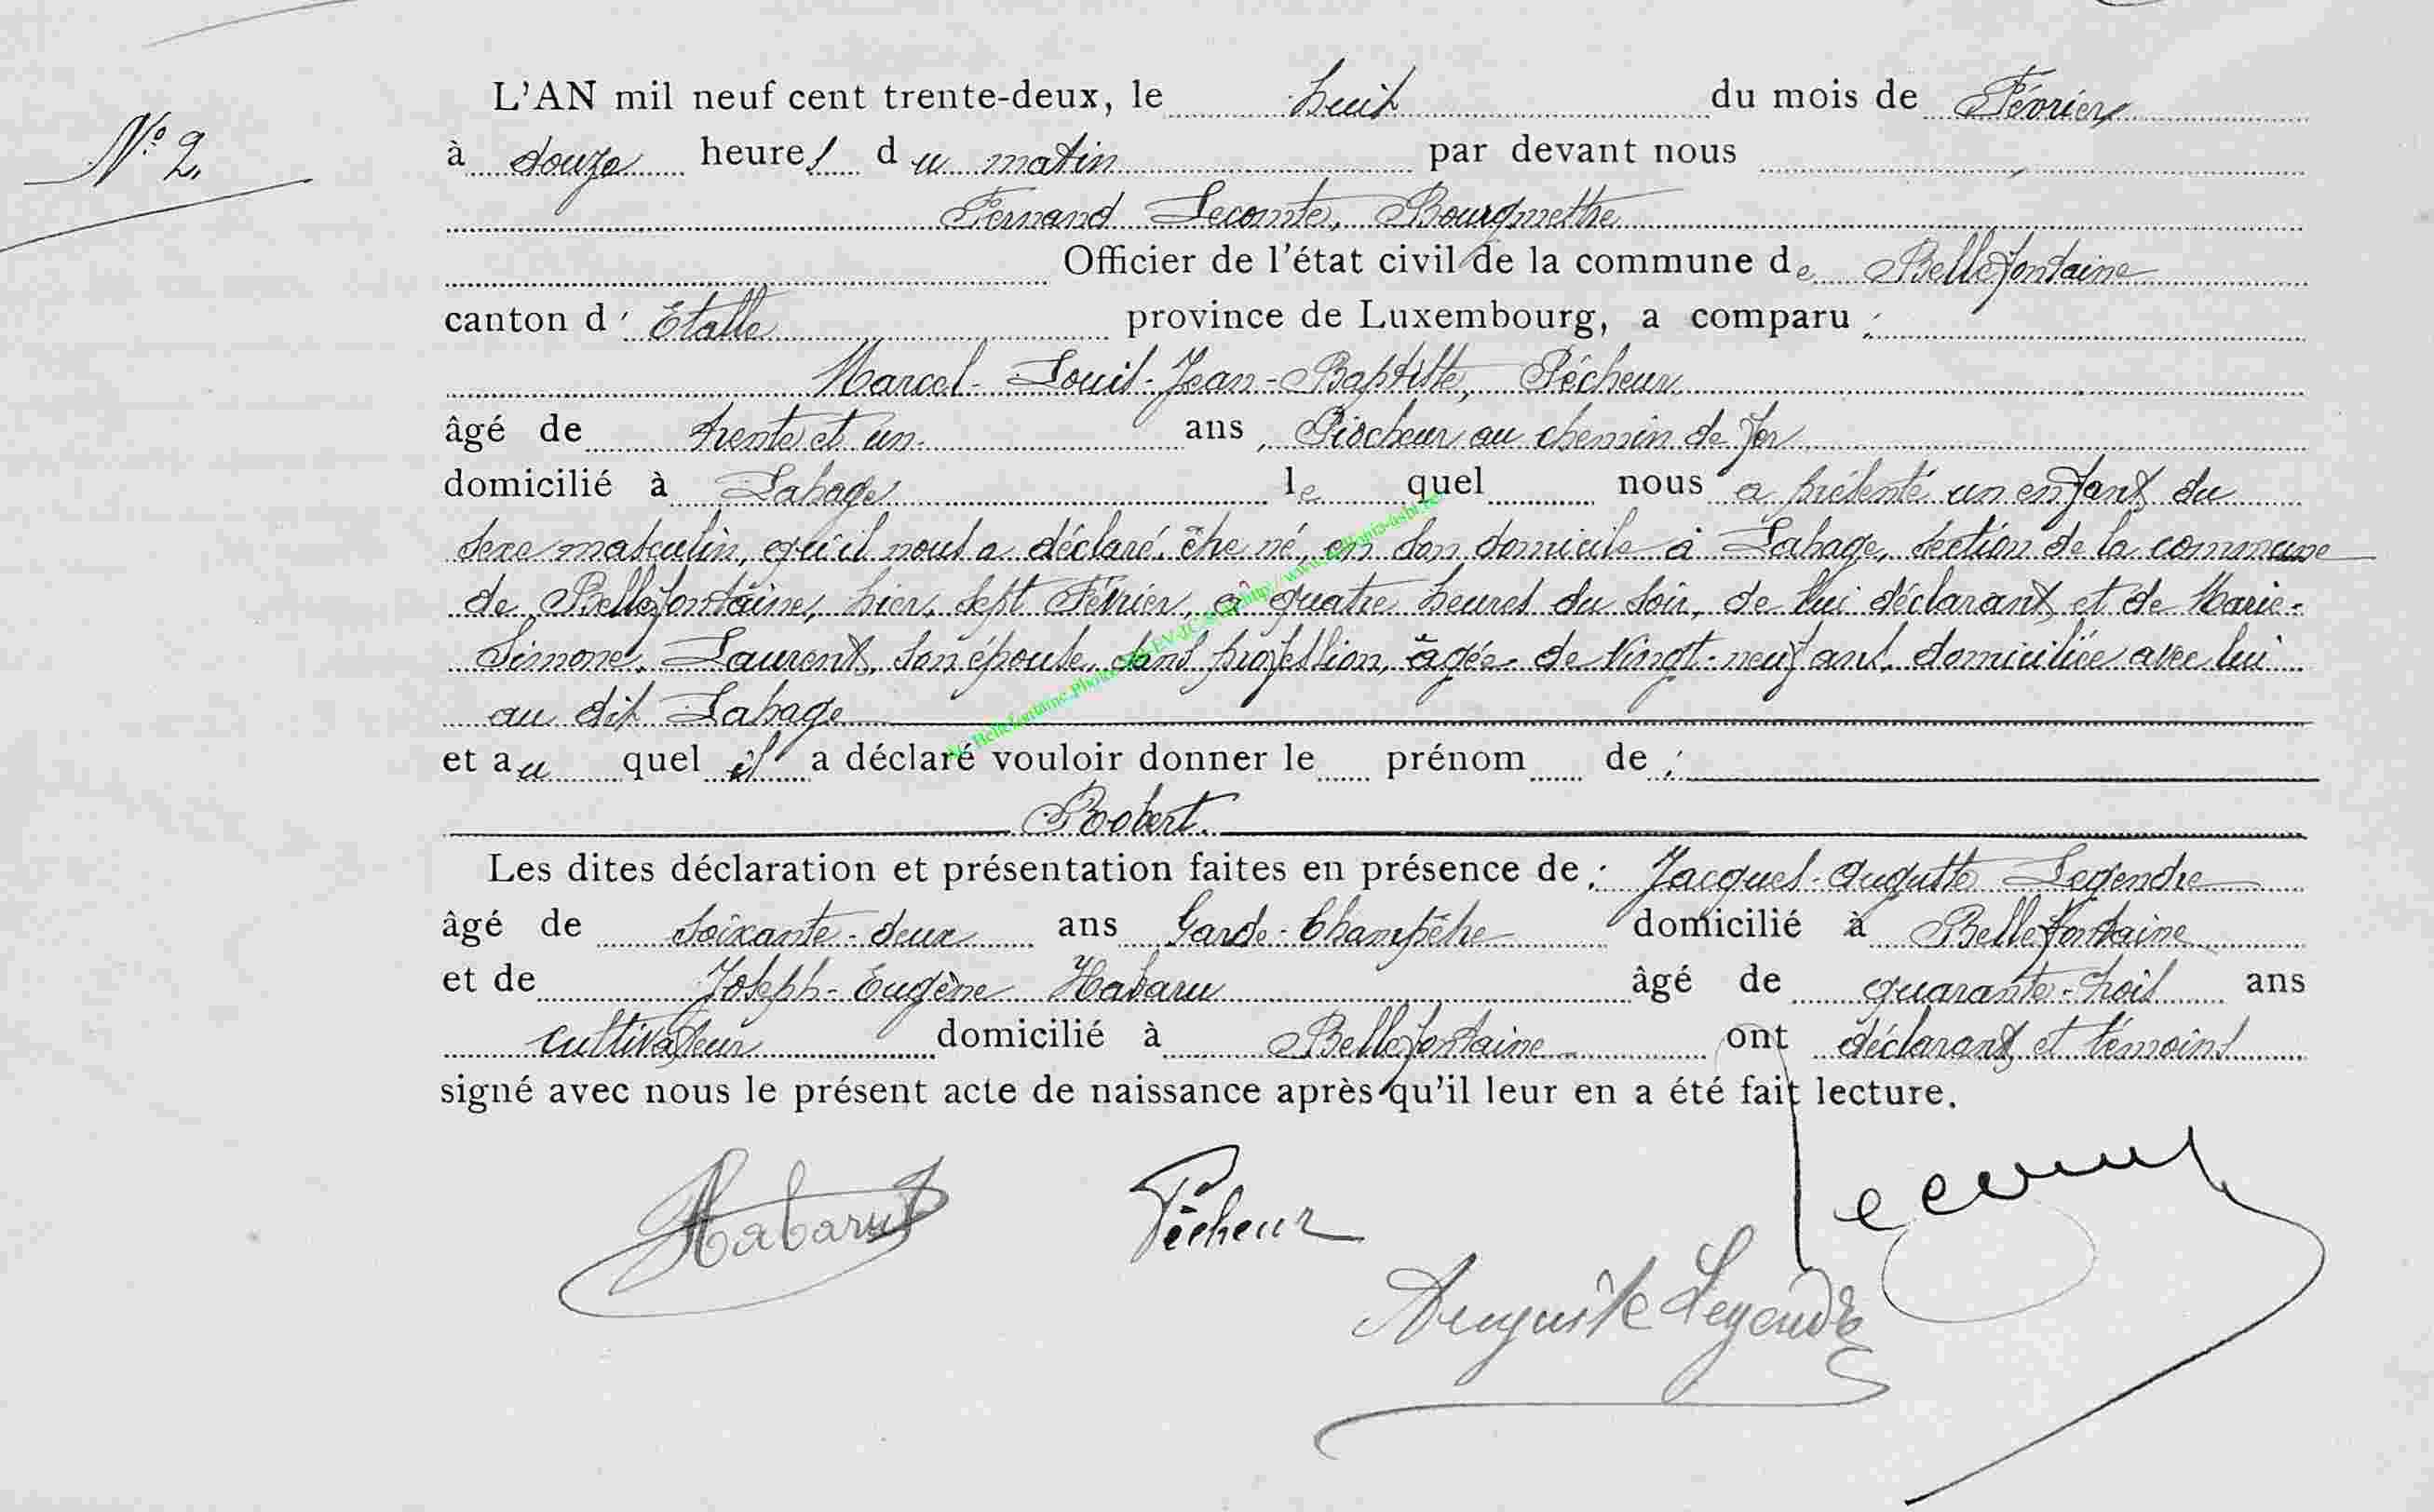 L'AN mil neuf cent trente-deux, le huit du mois de Février
N° 2.
à douze heures du matin par devant nous
Fernand Lecomte, Bourgmestre
Officier de l'état civil de la commune de Bellefontaine
canton d'Etalle province de Luxembourg, a comparu :
Marcel-Louis-Jean-Baptiste, Pêcheur
âgé de trente et un ans, Piocheur au chemin de fer
domicilié à Lahage lequel nous a présenté un enfant du
sexe masculin, qu'il nous a déclaré, être né, en son domicile à Lahage, section de la commune
de Bellefontaine, hier, sept Février, à quatre heures du soir, de lui déclarant, et de Marie-
Simone, Laurent, son épouse, sans profession, âgée de vingt-neuf ans, domiciliée avec lui
au dit Lahage
et auquel il a déclaré vouloir donner le prénom de :
Robert.
Les dites déclaration et présentation faites en présence de : Jacques-Auguste Legendre
âgé de soixante-deux ans Garde-Champêtre domicilié à Bellefontaine
et de Joseph-Eugène Habaru âgé de quarante-trois ans
cultivateur domicilié à Bellefontaine ont déclarant et témoins
signé avec nous le présent acte de naissance après qu'il leur en a été fait lecture.
Habaru Pêcheur Lecomte
Auguste Legendre